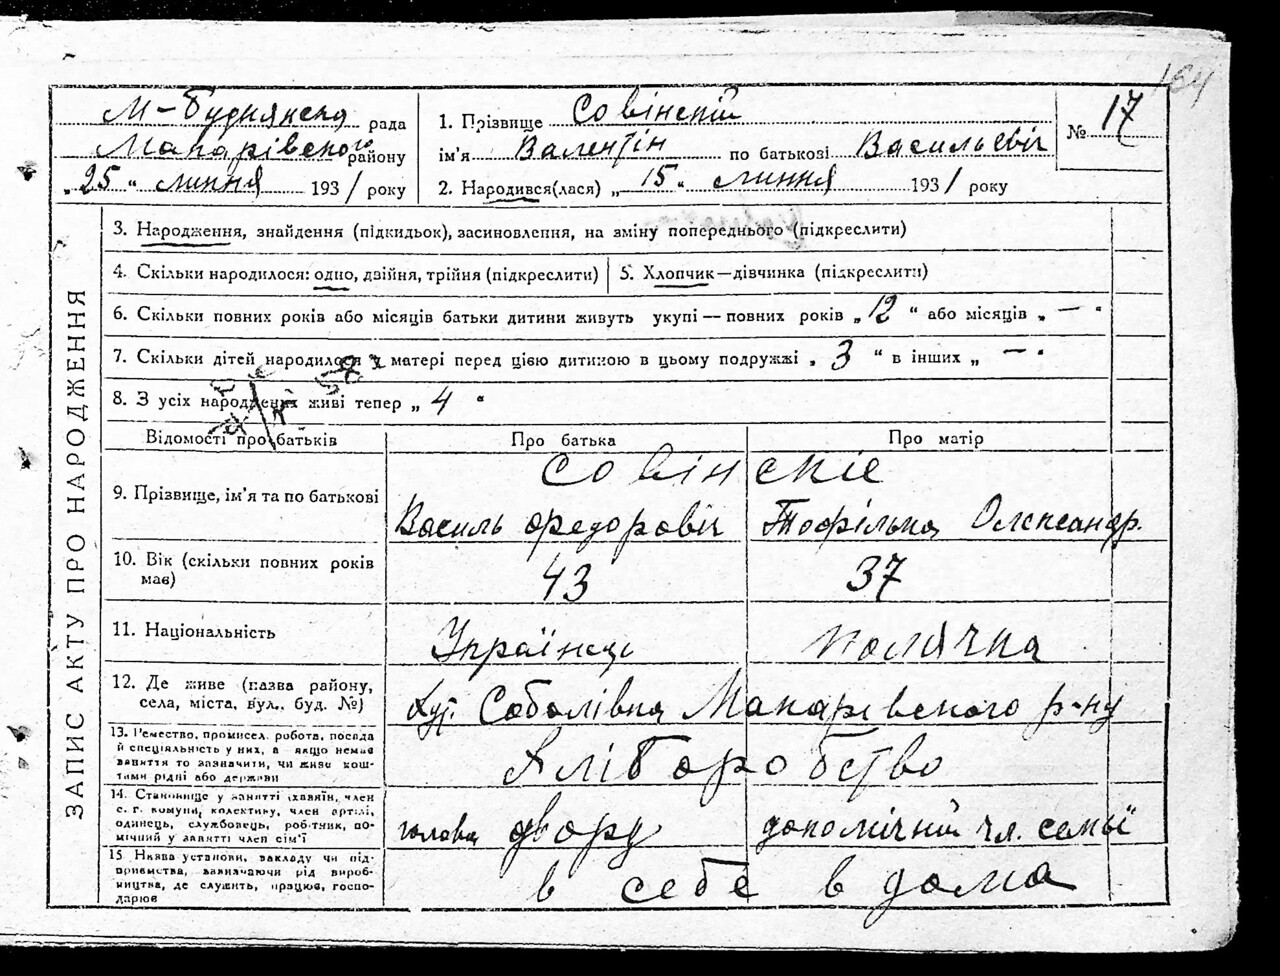 164
М-Буднянська рада
Макарівського району
„25“ липня 1931 року
1. Прізвище Совінский
ім'я Валентін по батькові Васильевіч
2. Народився(лася) „15“ липня 1931 року
№ 17
ЗАПИС АКТУ ПРО НАРОДЖЕННЯ
3. Народження, знайдення (підкидьок), засиновлення, на зміну попереднього (підкреслити)
4. Скільки народилося: одно, двійня, трійня (підкреслити) 5. Хлопчик—дівчинка (підкреслити)
6. Скільки повних років або місяців батьки дитини живуть укупі — повних років „12“ або місяців „—“
7. Скільки дітей народилося у матері перед цією дитиною в цьому подружжі „3“ в інших „—“
8. З усіх народжених живі тепер „4“
Відомості про батьків Про батька Про матір
Совінскіе
9. Прізвище, ім'я та по батькові Василь Федоровіч Теофілька Олександр.
10. Вік (скільки повних років має) 43 37
11. Національність Українец Полячка
12. Де живе (назва району,
села, міста, вул., буд. №) Хут. Соболівка Макарівского р-ну
13. Ремество, промисел, робота, посада
й спеціяльність у них, а якщо немає
заняття то зазначити, чи живе кош-
тами рідні або держави Хліборобство
14. Становище у занятті (хазяїн, член
с. г. комуни, колективу, член артілі,
одинець, службовець, робітник, по-
мічний у занятті член сім'ї голова двору допомічний чл. семьї
15 Назва установи, закладу чи під-
приємства, зазначаючи рід вироб-
ництва, де служить, працює, госпо-
дарює в себе в дома